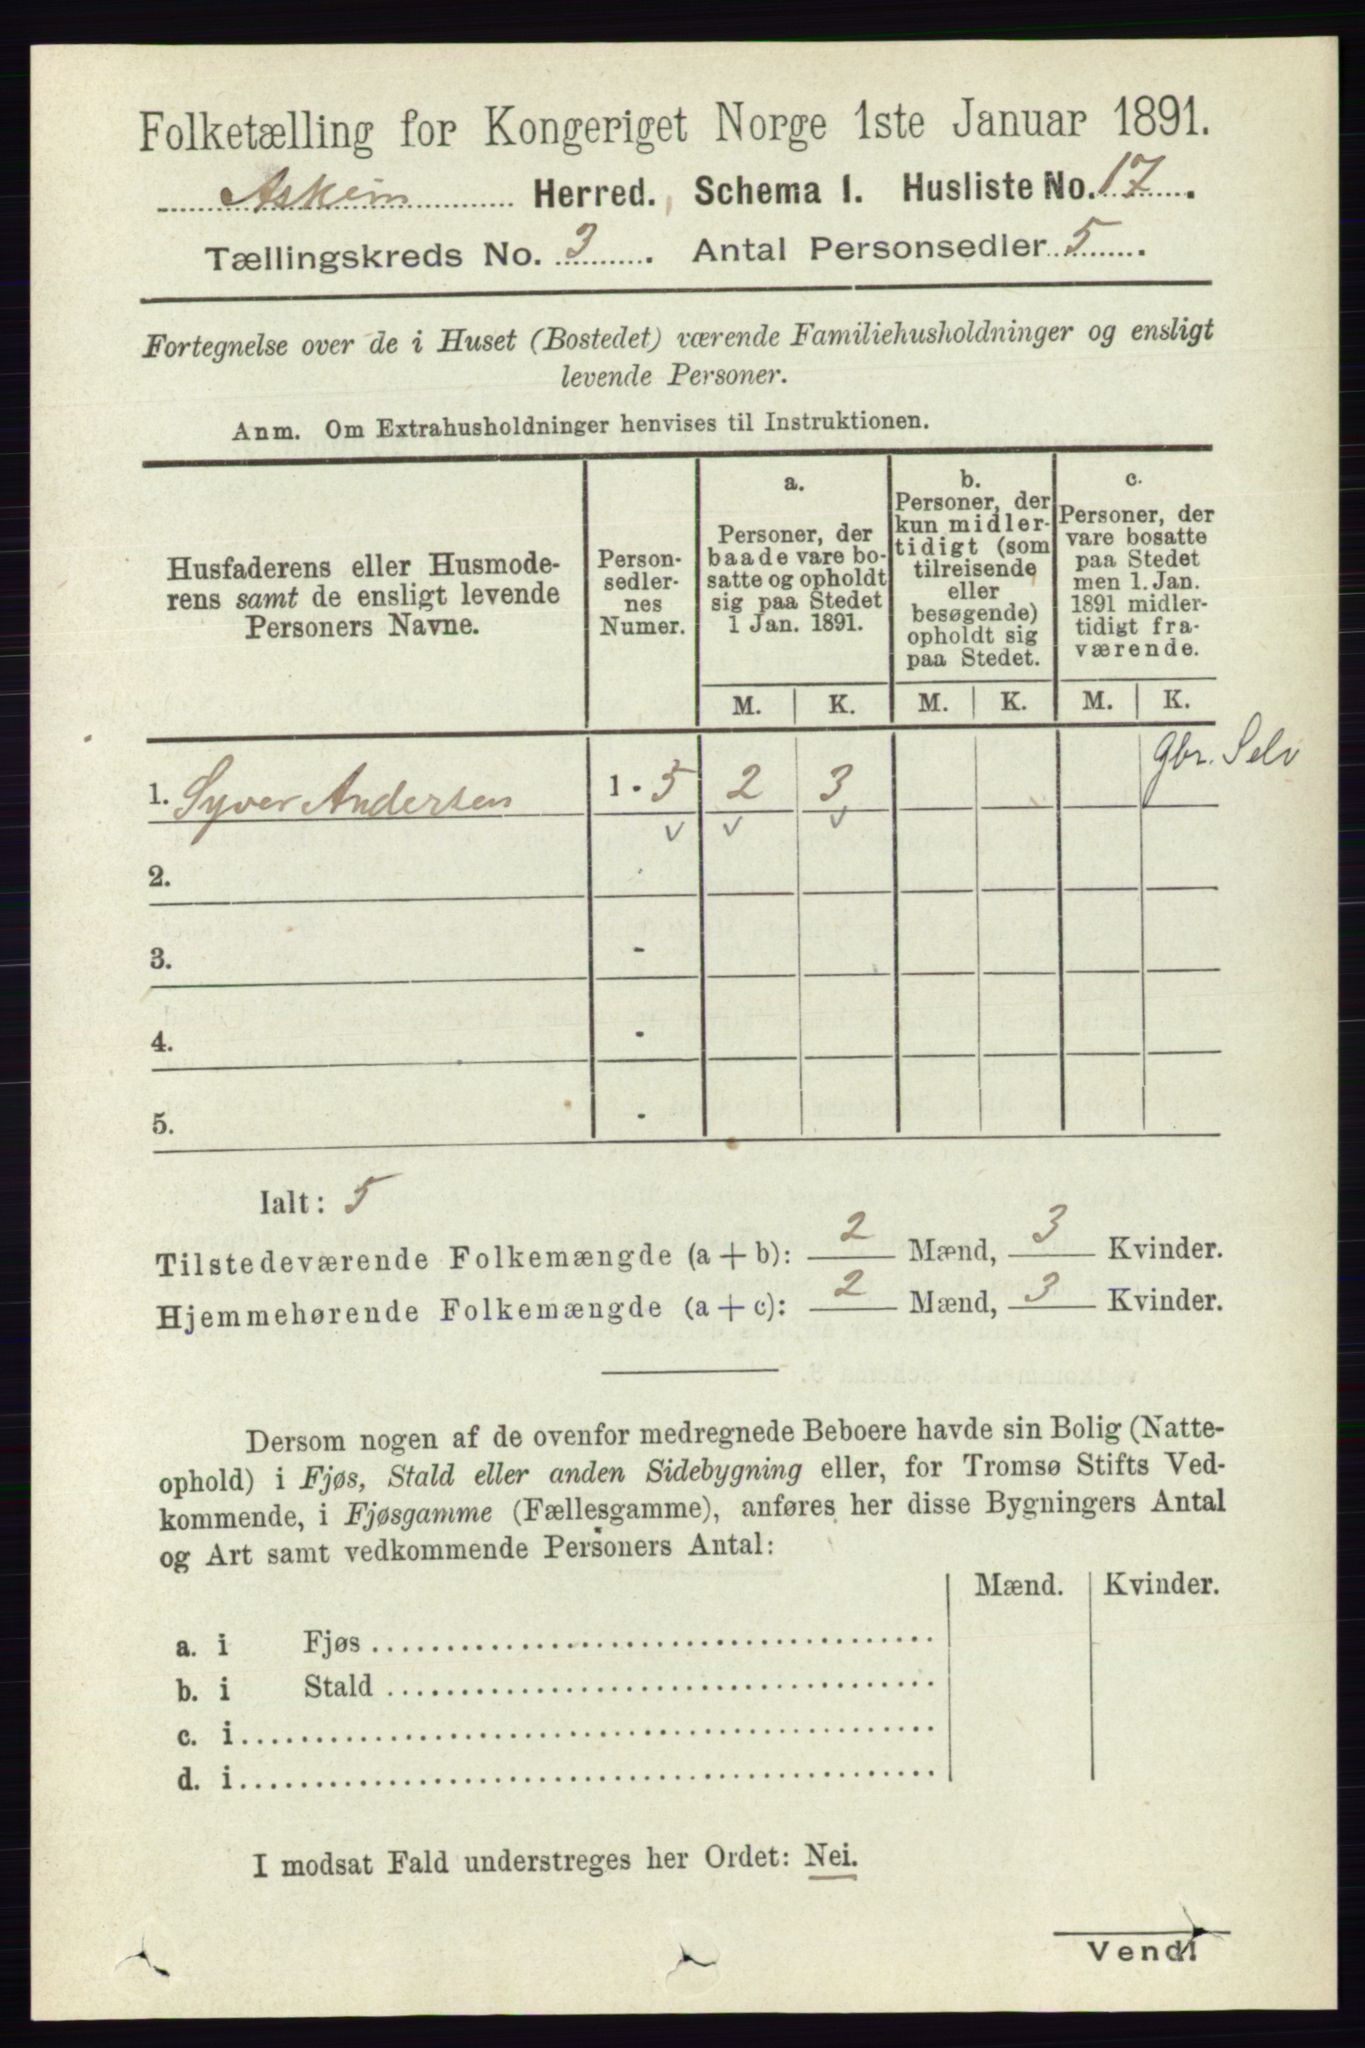 Folketælling for Kongeriget Norge 1ste Januar 1891.
Askim Herred. Schema I. Husliste No. 17.
Tællingskreds No. 3. Antal Personsedler 5.
Fortegnelse over de i Huset (Bostedet) værende Familiehusholdninger og ensligt
levende Personer.
Anm. Om Extrahusholdninger henvises til Instruktionen.
Husfaderens eller Husmode-
rens samt de ensligt levende
Personers Navne.
Person-
sedler-
nes
Numer.
a.
Personer, der
baade vare bo-
satte og opholdt
sig paa Stedet
1 Jan. 1891.
b.
Personer, der
kun midler-
tidigt (som
tilreisende
eller
besøgende)
opholdt sig
paa Stedet.
c.
Personer, der
vare bosatte
paa Stedet
men 1. Jan.
1891 midler-
tidigt fra-
værende.
M. K. M. K. M. K.
1. Syver Andersen 1 - 5 2 3 gbr. Selv
v v v
2.
3. -
4. -
5. -
Ialt: 5
Tilstedeværende Folkemængde (a + b): 2 Mænd, 3 Kvinder.
Hjemmehørende Folkemængde (a + c): 2 Mænd, 3 Kvinder.
Dersom nogen af de ovenfor medregnede Beboere havde sin Bolig (Natte-
ophold) i Fjøs, Stald eller anden Sidebygning eller, for Tromsø Stifts Ved-
kommende, i Fjøsgamme (Fællesgamme), anføres her disse Bygningers Antal
og Art samt vedkommende Personers Antal:
Mænd. Kvinder.
a. i Fjøs
b. i Stald
c. i
d. i
I modsat Fald understreges her Ordet: Nei.
Vend!